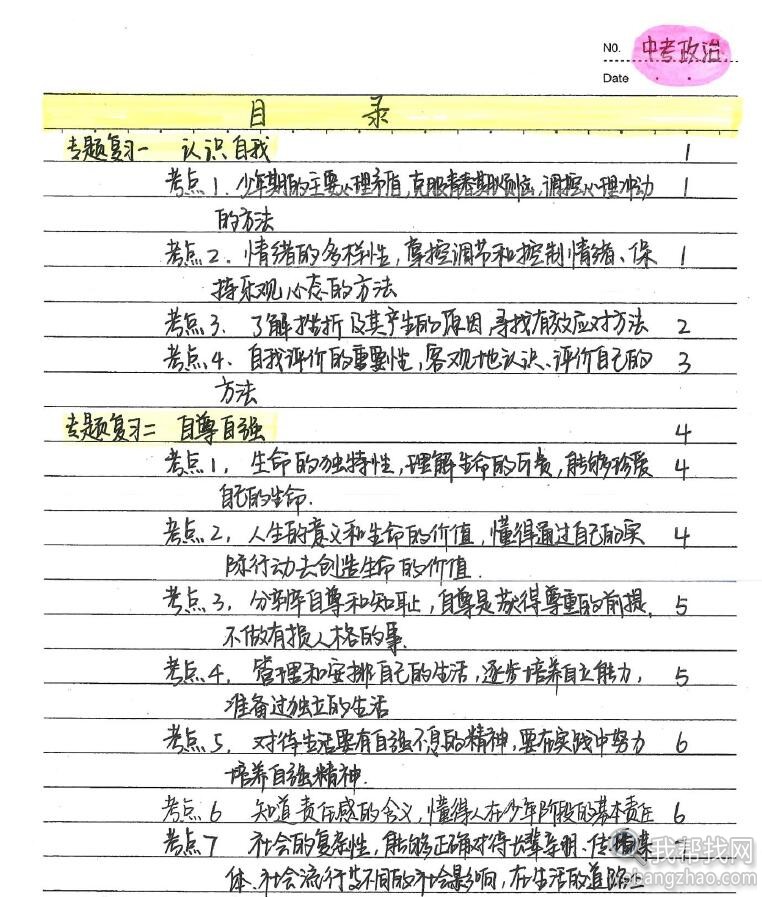 No. 中考政治
Date
目 录
专题复习一 认识自我 1
考点1. 少年期的主要心理矛盾,克服青春期烦恼,调控心理冲动 1
的方法
考点2. 情绪的多样性,掌控调节和控制情绪、保 1
持乐观心态的方法
考点3. 了解挫折及其产生的原因,寻找有效应对方法 2
考点4. 自我评价的重要性,客观地认识、评价自己的 3
方法
专题复习二 自尊自强 4
考点1, 生命的独特性,理解生命的可贵,能够珍爱 4
自己的生命.
考点2, 人生的意义和生命的价值,懂得通过自己的实 4
际行动去创造生命的价值.
考点3, 分辨自尊和知耻,自尊是获得尊重的前提, 5
不做有损人格的事.
考点4, 管理和安排自己的生活,逐步培养自立能力, 5
准备过独立的生活
考点5, 对待生活要有自强不息的精神,要在实践中努力 6
培养自强精神.
考点6 知道责任感的含义,懂得人在少年阶段的基本责任 6
考点7 社会的复杂性,能够正确对待长辈亲朋、传媒
体、社会流行 不同的社会影响,在生活的道路上
我帮找网
wobangzhao.com